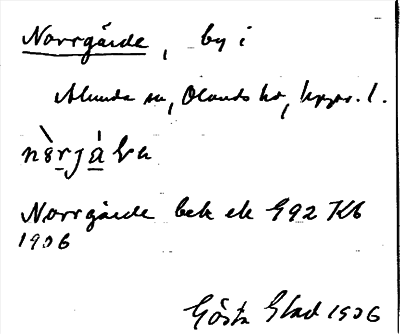 Norrgärde, by i
Alunda sn, Olands hd, Upps. l.
Norrgärde bek ek 992 Kb
1906
Gösta Glad 1906